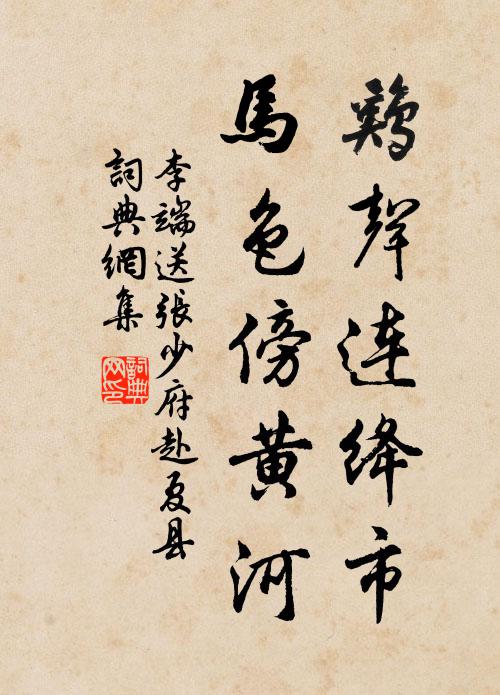 鷄聲連绛市
馬色傍黄河
李端送張少府赴夏县
詞典網集
詞典
网印